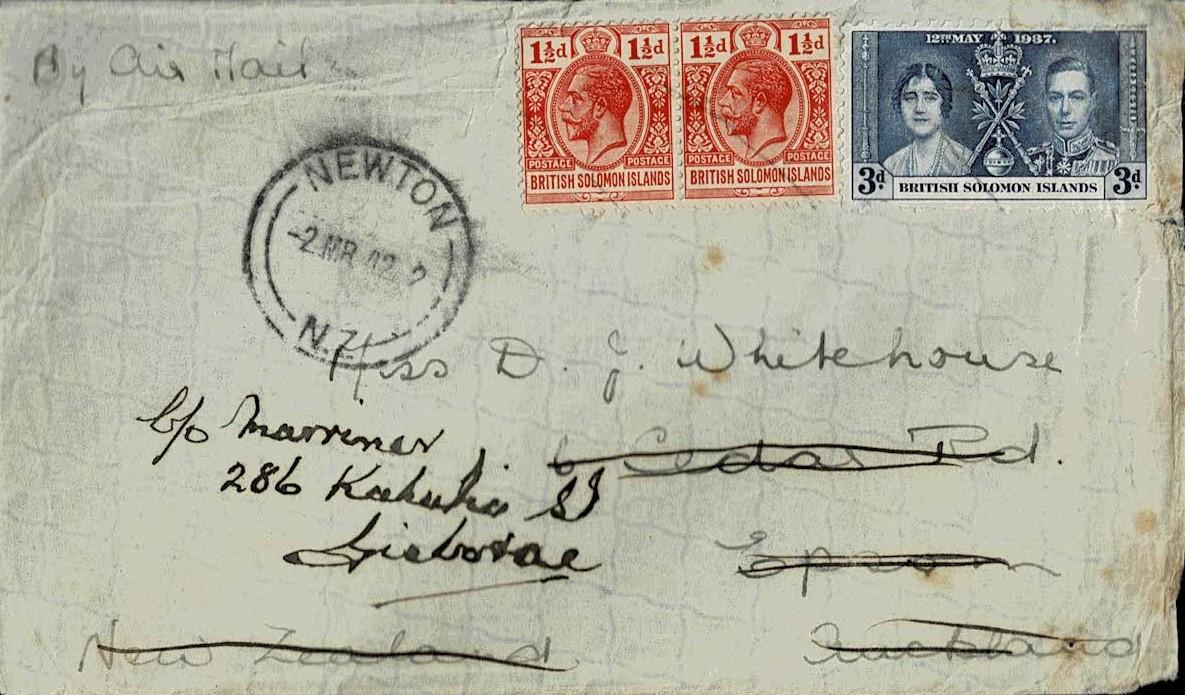 By Air Mail
1½d 1½d
POSTAGE POSTAGE
BRITISH SOLOMON ISLANDS
1½d 1½d
POSTAGE POSTAGE
BRITISH SOLOMON ISLANDS
12TH MAY 1937.
3d 3d
BRITISH SOLOMON ISLANDS
NEWTON
-2 MR 42
N.Z.
Miss D. J. Whitehouse
c/o Marriner
286 St
Gisborne
6 Cedar Rd.
Epsom
Auckland
New Zealand